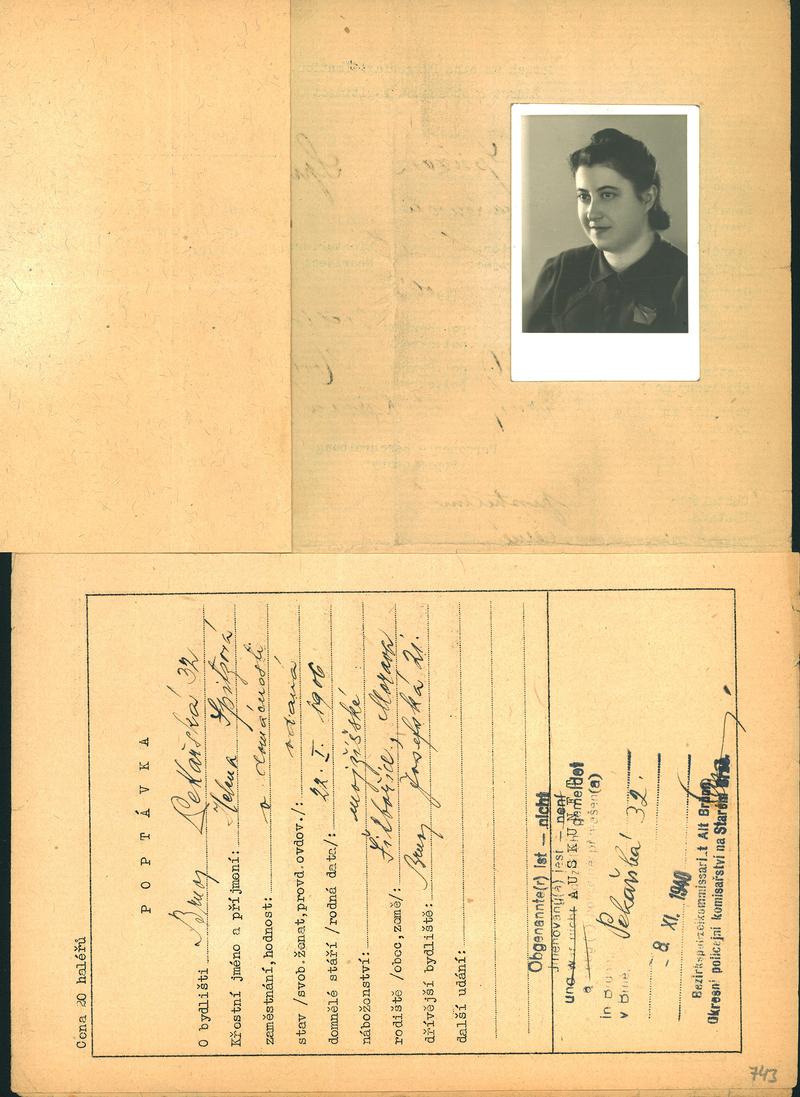 Cena 20 haléřů
POPTÁVKA
O bydlišti Brno, Pekařská 32
Křestní jméno a příjmení: Helena Spitzová
zaměstnání,hodnost: v domácnosti
stav /svob.ženat,provd.ovdov./: vdaná
domnělé stáří /rodná data/: 22. I. 1906
náboženství: mojžíšské
rodiště /obec,země/: Morava
dřívější bydliště: Brno, Josefská 21.
další udání:
Obgenannte(r) ist — nicht
Jmenovaný(á) jest — není
und AUSKUNF gemeldet
a
in
v Brně Pekařská 32.
- 8. XI. 1940
Bezirkspolizeikommissariat Alt Brünn
Okresní policejní komisařství na Starém Brně.
743